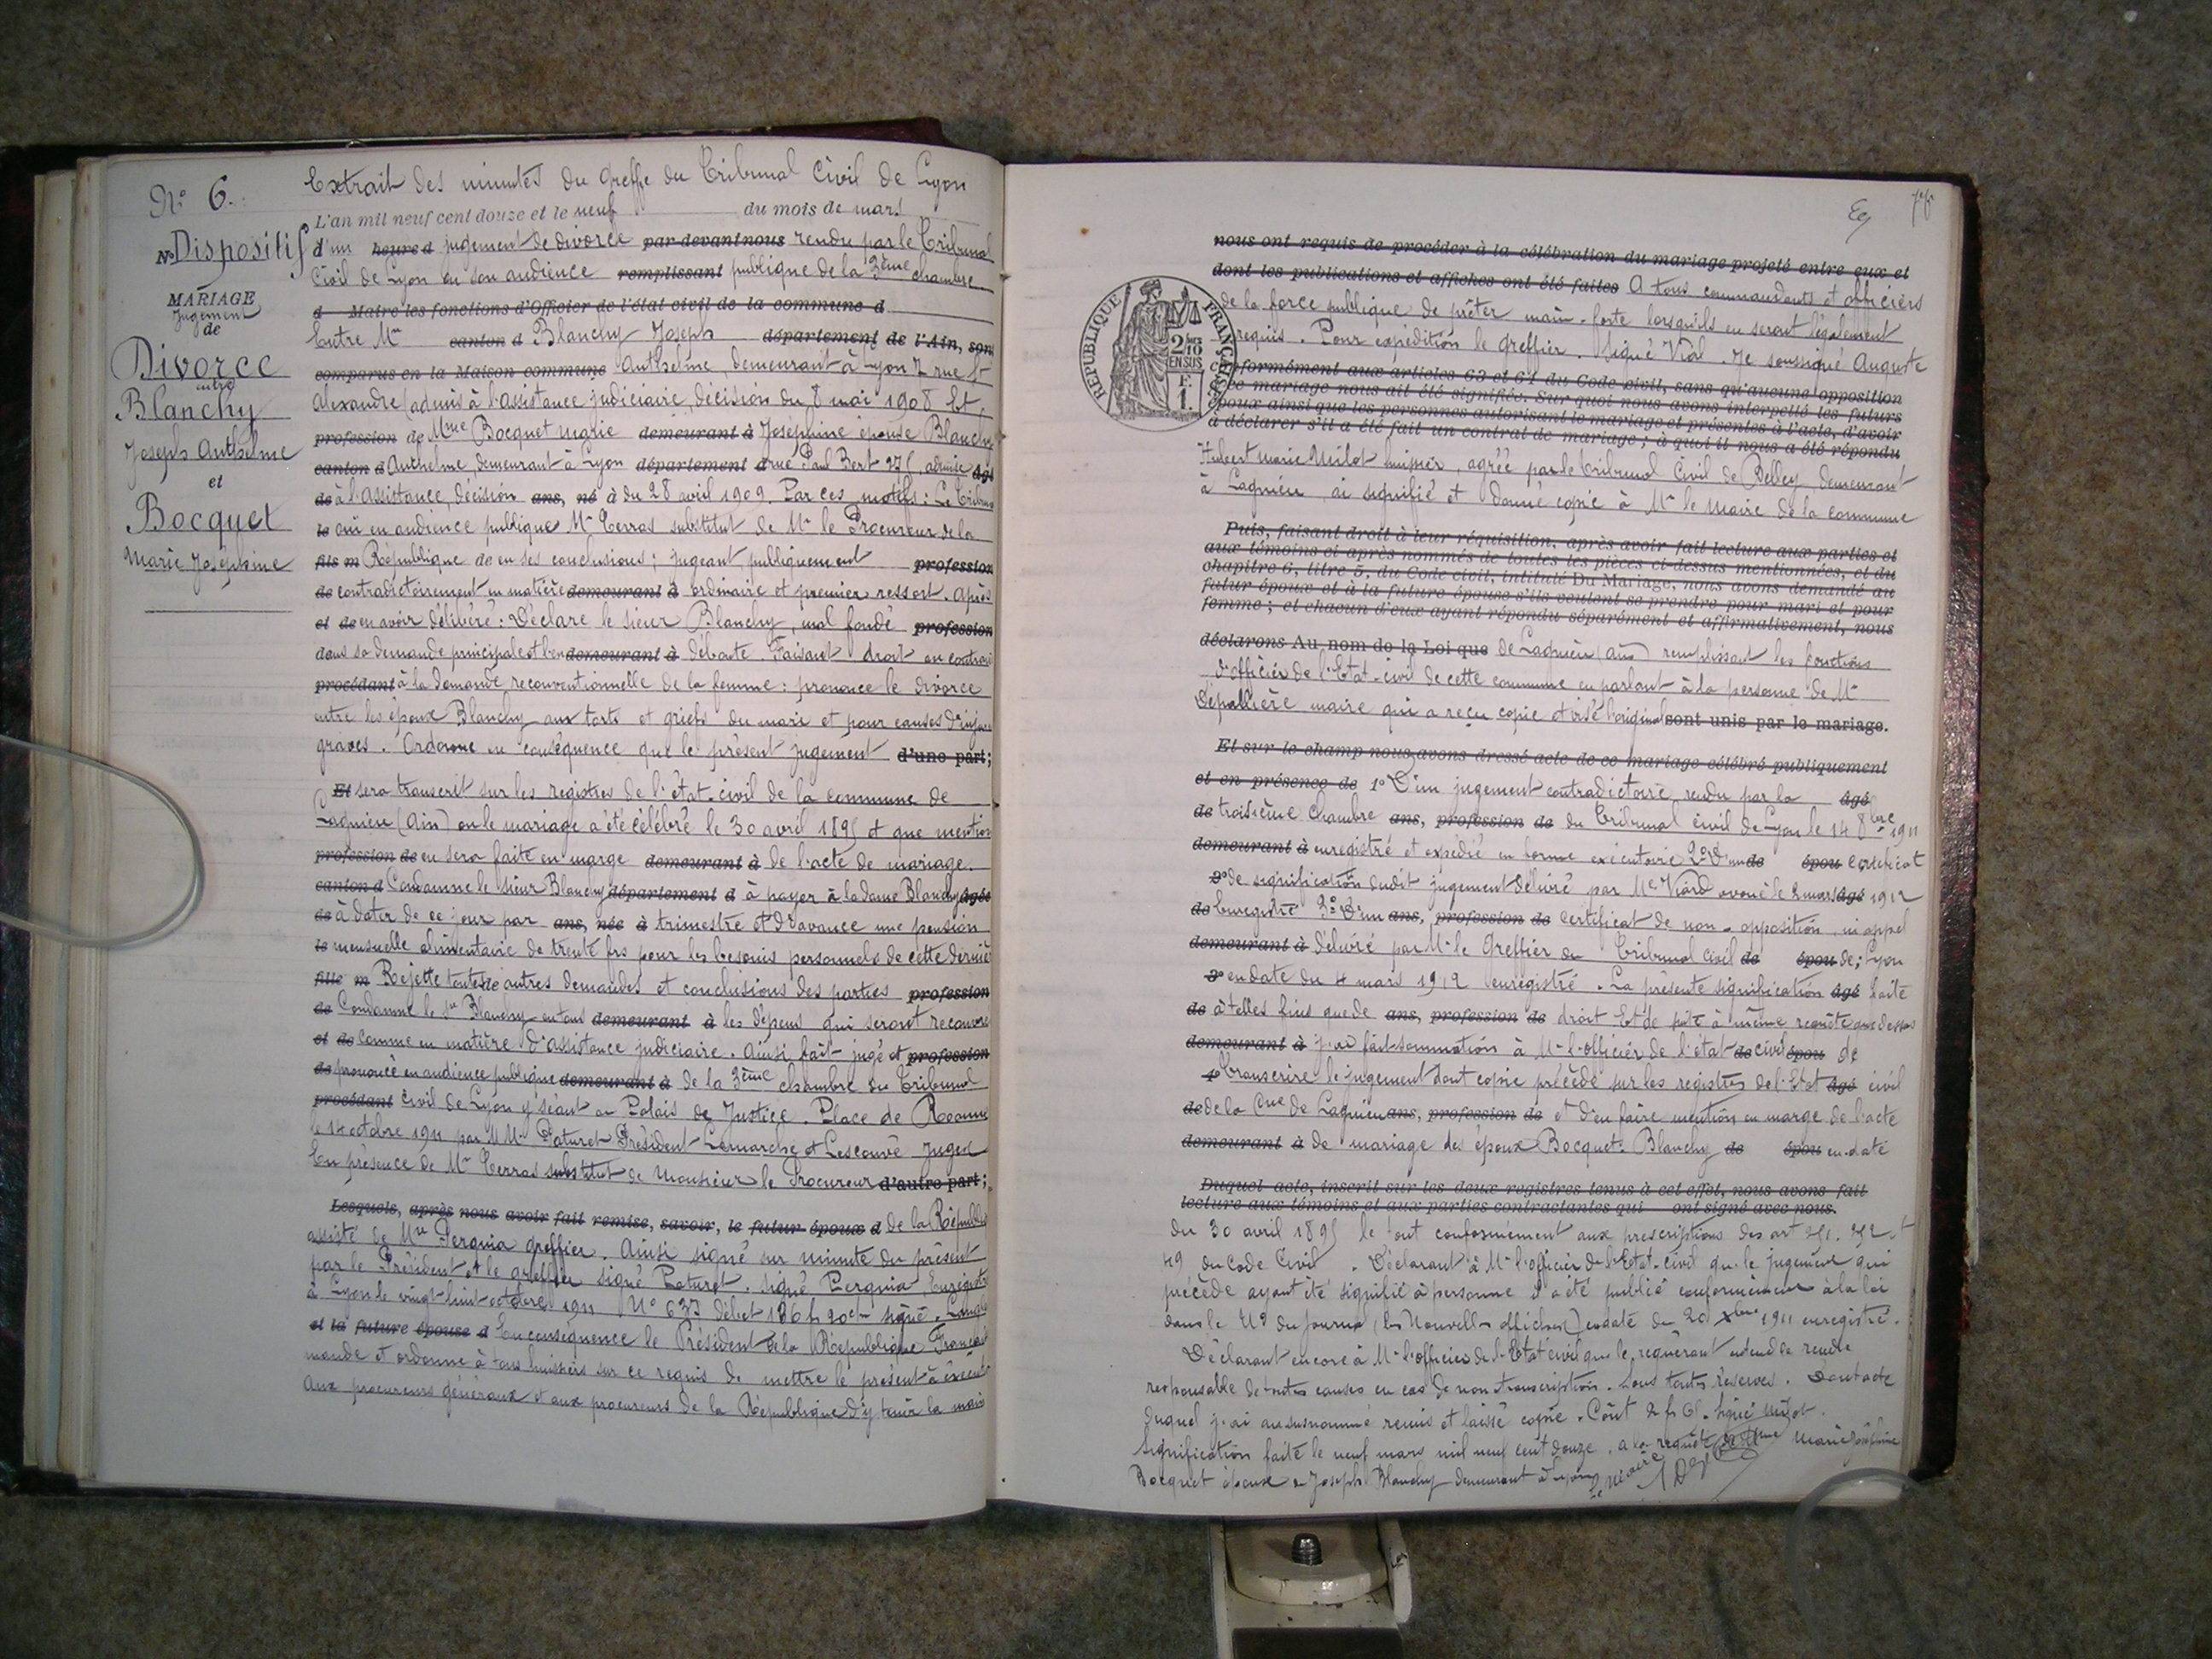 N° 6.
Dispositif
MARIAGE
Jugement
de
Divorce
entre
Blanchy
Joseph Anthelme
et
Bocquet
Marie Joséphine
Extrait des minutes du Greffe du Tribunal Civil de Lyon
L'an mil neuf cent douze et le neuf du mois de mars
d'un heure d jugement de divorce par-devant nous rendu par le Tribunal
Civil de Lyon en son audience remplissant publique de la 3ème chambre
d Maire les fonctions d'Officier de l'état civil de la commune d
Entre Mr canton d Blanchy Joseph département de l'Ain, son
comparus en la Maison commune Anthelme, demeurant à Lyon 7 rue St
Alexandre admis à l'assistance judiciaire, décision du 8 mai 1908 Et,
profession de Mme Bocquet Marie demeurant à Joséphine épouse Blanchy
canton d Anthelme, demeurant à Lyon département d rue Paul Bert admise âgé
de à l'Assistance, décision ans, né à du 28 avril 1909. Par ces motifs : Le Tribunal
le oui en audience publique Mr Terras substitut de Mr le Procureur de la
fils m République de en ses conclusions ; jugeant publiquement profession
de contradictoirement en matière demeurant à ordinaire et premier ressort. après
et de en avoir délibéré : Déclare le sieur Blanchy, mal fondé profession
dans sa demande principale et l'en demeurant à déboute. Faisant droit au contraire
procédant à la demande reconventionnelle de la femme : prononce le divorce
entre les époux Blanchy aux torts et griefs du mari et pour causes d'injures
graves. Ordonne en conséquence que le présent jugement d'une part ;
Et sera transcrit sur les registres de l'état-civil de la commune de
Lagnieu (Ain) où le mariage a été célébré le 30 avril 1895 et que mention
profession de en sera faite en marge demeurant à de l'acte de mariage.
canton d Condamne le sieur Blanchy département d à payer à la dame Blanchy âgée
de à dater de ce jour par ans, née à trimestre et d'avance une pension
le mensuelle alimentaire de trente frs pour les besoins personnels de cette dernière
fille m Rejette toutes de autres demandes et conclusions des parties profession
de Condamne le Sr Blanchy en tous demeurant à les dépens qui seront recouvrés
et de comme en matière d'assistance judiciaire. Ainsi fait jugé et profession
de prononcé en audience publique demeurant à de la 3ème chambre du Tribunal
procédant Civil de Lyon y séant au Palais de Justice. Place de Roanne
le 14 octobre 1911 par MM. Paturet Président Lamarche et Lescouvé Juges
En présence de Mr Terras substitut de Monsieur le Procureur d'autre part ;
Lesquels, après nous avoir fait remise, savoir, le futur époux d de la République
assisté de Me Perquia greffier. Ainsi signé sur minute du présent
par le Président et le greffier signé Paturet. Signé Perquia, Enregistré
à Lyon le vingt-huit octobre 1911 N° débet signé.
et la future épouse d En conséquence le Président de la République Française
mande et ordonne à tous huissiers sur ce requis de mettre le présent à exécution
Aux procureurs généraux et aux procureurs de la République d'y tenir la main
RÉPUBLIQUE FRANÇAISE
2/10
EN SUS
F.
1.
nous ont requis de procéder à la célébration du mariage projeté entre eux et
dont les publications et affiches ont été faites A tous commandants et officiers
de la force publique de prêter main-forte lorsqu'ils en seront légalement
requis. Pour expédition le Greffier. Signé Vial. Je soussigné Auguste
conformément aux articles 63 et 64 du Code civil, sans qu'aucune opposition
ce mariage nous ait été signifiée. Sur quoi nous avons interpellé les futurs
époux ainsi que les personnes autorisant le mariage et présentes à l'acte, d'avoir
à déclarer s'il a été fait un contrat de mariage ; à quoi il nous a été répondu
Hubert Marie Milot huissier, agréé par le tribunal Civil de Belley, demeurant
à Lagnieu, ai signifié et donné copie à Mr le Maire de la commune
Puis, faisant droit à leur réquisition, après avoir fait lecture aux parties et
aux témoins ci-après nommés de toutes les pièces ci-dessus mentionnées, et du
chapitre 6, titre 5, du Code civil, intitulé Du Mariage, nous avons demandé au
futur époux et à la future épouse s'ils veulent se prendre pour mari et pour
femme ; et chacun d'eux ayant répondu séparément et affirmativement, nous
déclarons Au nom de la Loi que de Lagnieu (Ain) remplissant les fonctions
d'officier de l'Etat-civil de cette commune en parlant à la personne de Mr
maire qui a reçu copie et visé l'original sont unis par le mariage.
Et sur le champ nous avons dressé acte de ce mariage célébré publiquement
et en présence de 1° D'un jugement contradictoire rendu par la âgé
de troisième Chambre ans, profession de du Tribunal civil de Lyon le 14 8bre 1911
demeurant à enregistré et expédié en forme exécutoire 2° D'un de épou certificat
2° de signification dudit jugement délivré par Me Viard avoué le 2 mars âgé 1912
de Enregistré 3° D'un ans, profession de certificat de non-opposition, ni appel
demeurant à délivré par Mr le Greffier du Tribunal Civil de épou de ; Lyon
3° en date du 4 mars 1912 enregistré. La présente signification âgé faite
de à telles fins que de ans, profession de droit Et de suite à même requête que dessus
demeurant à j'ai fait sommation à Mr l'officier de l'état de civil épou de
4° transcrire le jugement dont copie précède sur les registres de l'Etat âgé civil
de de la Cne de Lagnieu ans, profession de et d'en faire mention en marge de l'acte
demeurant à de mariage des époux Bocquet-Blanchy de épou en date
Duquel acte, inscrit sur les deux registres tenus à cet effet, nous avons fait
lecture aux témoins et aux parties contractantes qui ont signé avec nous.
du 30 avril 1895 le tout conformément aux prescriptions des art 251. 252. et
49 du Code Civil. Déclarant à Mr l'officier de l'Etat-civil que le jugement qui
précède ayant été signifié à personne a été publié conformément à la loi
dans le N° du journal (les Nouvelles affiches) en date du 20 Xbre 1911 enregistré.
Déclarant encore à Mr l'officier de l'Etat civil que le requérant entend le rendre
responsable de toutes causes en cas de non transcription. Sous toutes réserves. Dont acte
Duquel j'ai au susnommé remis et laissé copie. Coût signé Milot.
Signification faite le neuf mars mil neuf cent douze, à la requête de Mme Marie Joséphine
Bocquet épouse de Joseph Blanchy demeurant à Lyon
Le Maire